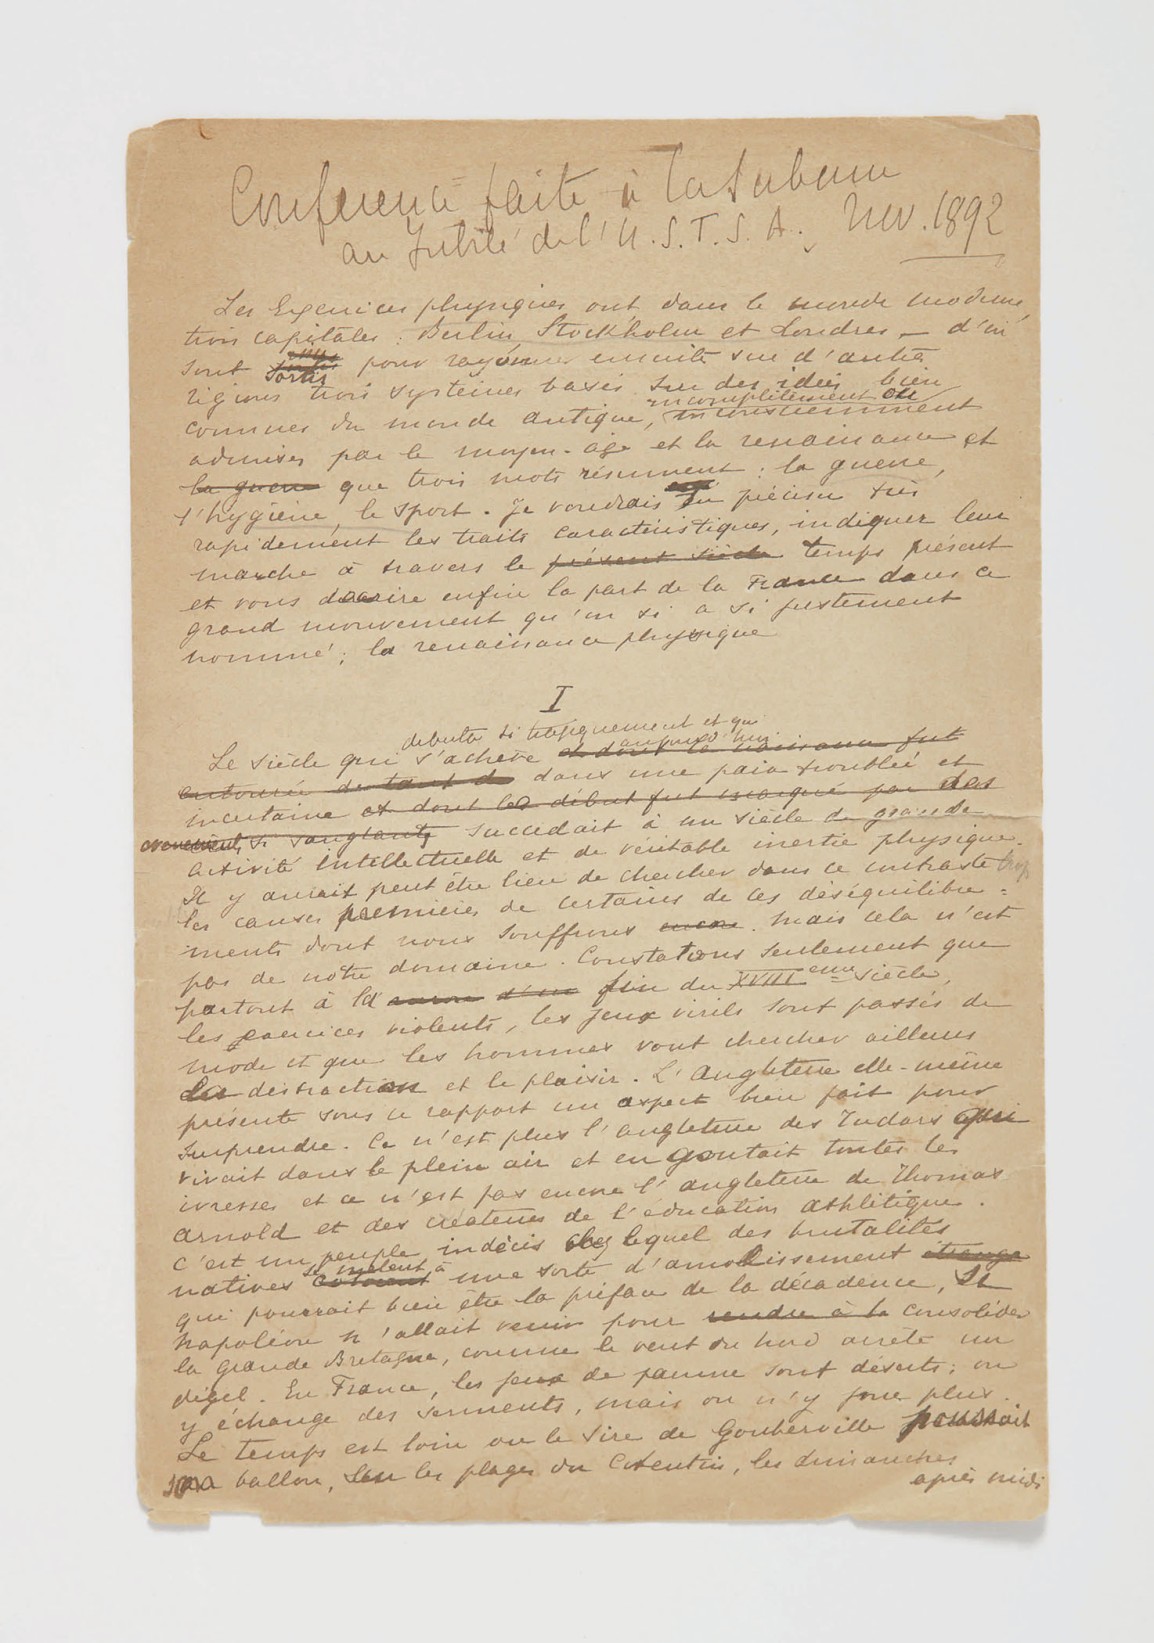 Conférence faite à la Sorbonne
au Jubilé de l'U.S.F.S.A. Nov. 1892
Les Exercices physiques ont, dans le monde moderne,
trois capitales : Berlin, Stockholm et Londres — d'où
sont sortis pour rayonner ensuite sur d'autres
régions trois systèmes basés sur des idées bien
incomplètement ou
connues du monde antique, inconsciemment
admises par le moyen-age et la renaissance et
la guerre que trois mots résument : la guerre,
l'hygiène, le sport. Je voudrais en préciser très
rapidement les traits caractéristiques, indiquer leur
marche à travers le présent siècle temps présent
et vous décrire enfin la part de la France dans ce
grand mouvement qu'on si a si justement
nommé : la renaissance physique
I
débuta si tragiquement et qui
aujourd'hui
Le siècle qui s'achève et dont la naissance fut
entourée de tant de dans une paix troublée et
incertaine et dont les début fut marqué par des
évènements si sanglants succédait à un siècle de grande
activité intellectuelle et de véritable inertie physique.
Il y aurait peut être lieu de chercher dans ce contraste trop
les causes premières de certains de ces déséquilibre-
ments dont nous souffrons encore. Mais cela n'est
pas de notre domaine. Constatons seulement que
partout à la fin du XVIIIème siècle,
les exercices violents, les jeux virils sont passés de
mode et que les hommes vont chercher ailleurs
la distraction et le plaisir. L'Angleterre elle-même
présente sous ce rapport un aspect bien fait pour
surprendre. Ce n'est plus l'angleterre des Tudors qui
vivait dans le plein air et en goutait toutes les
ivresses et ce n'est pas encore l'angleterre de Thomas
Arnold et des créateurs de l'éducation athlétique.
C'est un peuple indécis chez lequel des brutalités
se mêlent à
natives cotoient une sorte d'amollissement étrange
qui pourrait bien être la préface de la décadence, si
Napoléon n'allait venir pour rendre à la consolider
la Grande Bretagne, comme le vent du nord arrête un
dégel. En France, les jeux de paume sont déserts ; on
y échange des serments, mais on n'y joue plus.
Le temps est loin ou le Sire de Gouberville poussait
son ballon, sur les plages du Cotentin, les dimanches
après midi